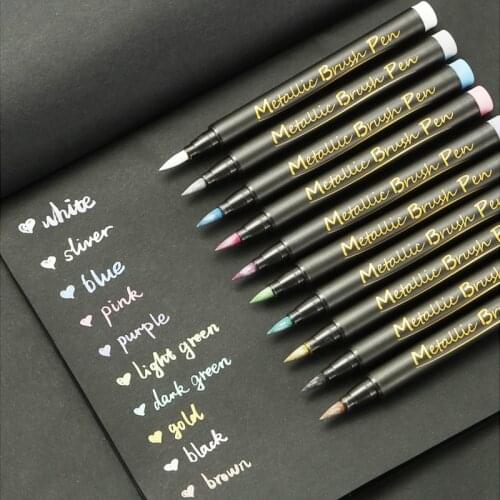 Metallic Brush Pen
Metallic Brush Pen
Metallic Brush Pen
Metallic Brush Pen
Metallic Brush Pen
Metallic Brush Pen
Metallic Brush Pen
Metallic Brush Pen
Metallic Brush Pen
Metallic Brush Pen
white
sliver
blue
pink
purple
light green
dark green
gold
black
brown